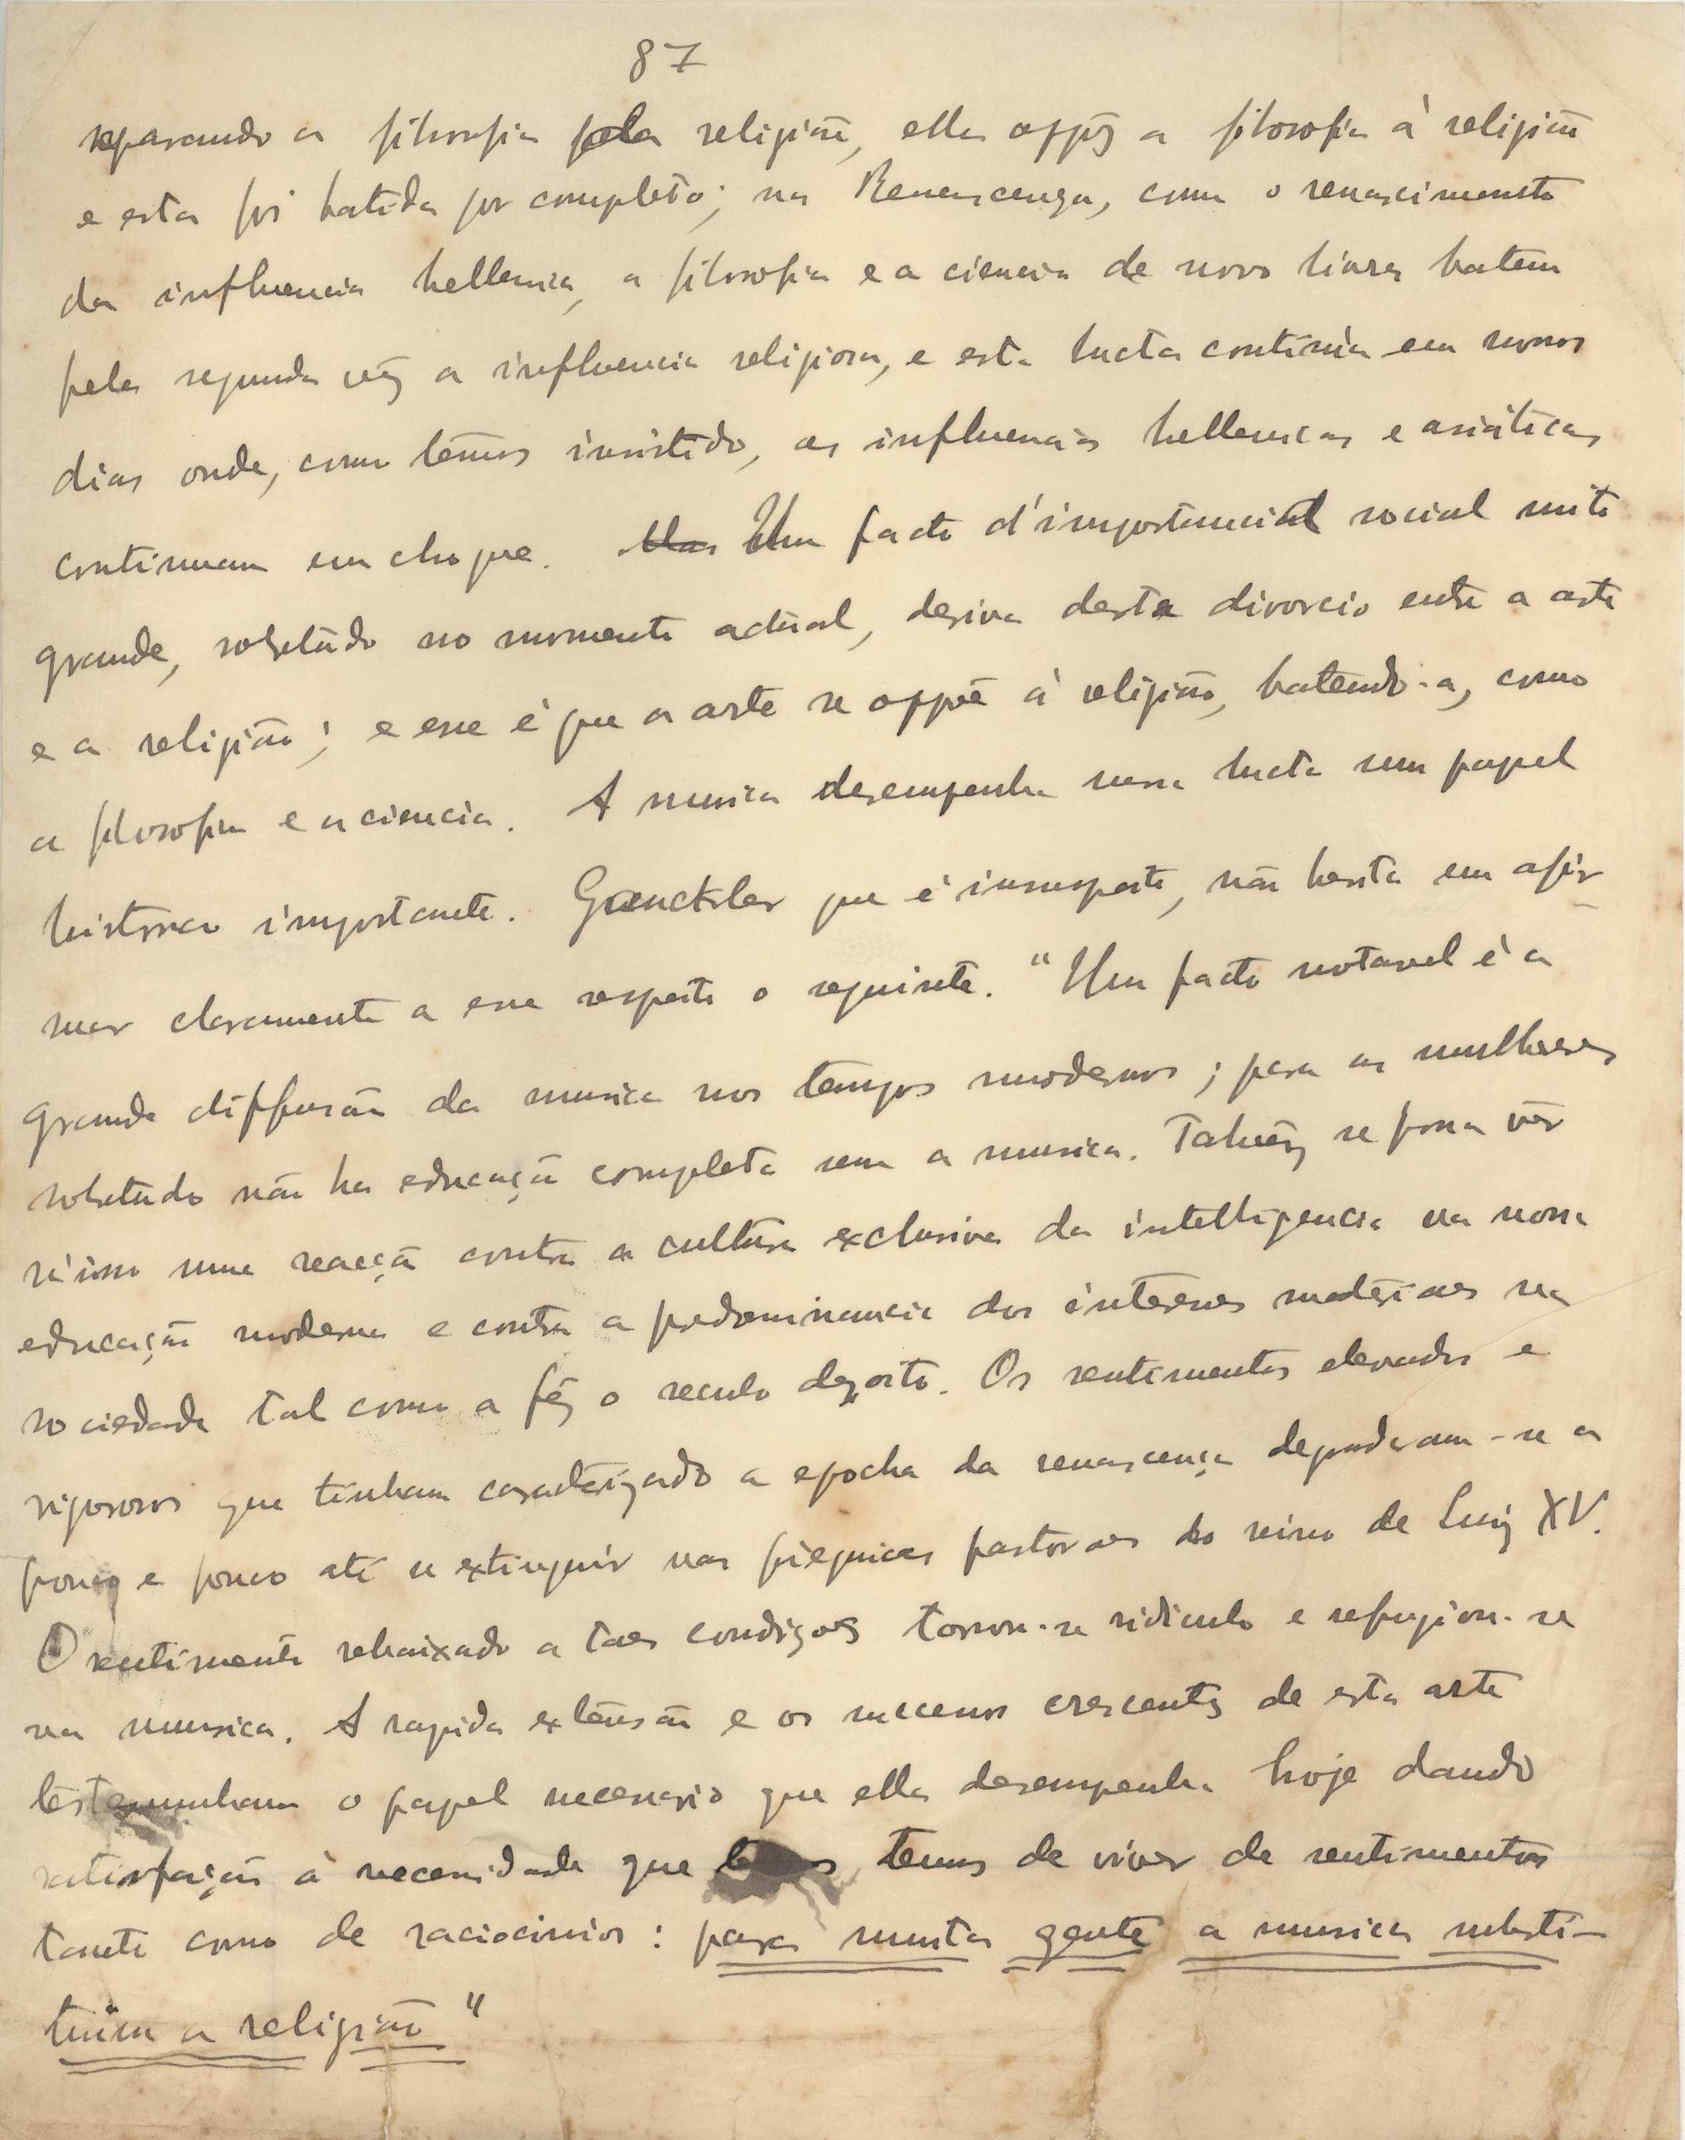 87
separando a filosofia pela religião, ella oppôz a filosofia á religião
e esta foi batida por completo; na Renascença, com o renascimento
da influencia hellenica, a filosofia e a ciencia de novo livres batem
pela segunda vêz a influencia religiosa, e esta lucta continúa em nossos
dias onde, como têmos insistido, as influencias hellenicas e asiáticas
continuam em choque. Mas Um facto d'importancia social muito
grande, sobretudo no momento actual, deriva desta divorcio entre a arte
e a religião; e esse é que a arte se oppõe á religião, batendo-a, como
a filosofia e a ciencia. A musica desempenha nessa lucta um papel
historico importante. Gauckler que é insuspeito, não hesita em afir-
mar claramente a esse respeito o seguinte. "Um facto notavel é a
grande diffusão da musica nos tempos modernos; para as mulheres
sobretudo não ha educação completa sem a musica. Talvêz se possa vêr
n'isso uma reacção contra a cultura exclusiva da intelligencia na nossa
educação moderna e contra a predominancia dos interesses materiaes na
sociedade tal como a fêz o seculo dezoito. Os sentimentos elevados e
vigorosos que tinham caracterizado a epocha da renascença degradaram-se a
pouco e pouco até se extinguir nas pieguices pastoraes do reino de Luiz XV.
O sentimento rebaixado a taes condições tornou-se ridiculo e refugiou-se
na musica. A rapida extensão e os successos crescentes de esta arte
testemunham o papel necessario que ella desempenha hoje dando
satisfação á necessidade que temos de viver de sentimentos
tanto como de raciocinios: para muita gente a musica substi-
tuiu a religião"